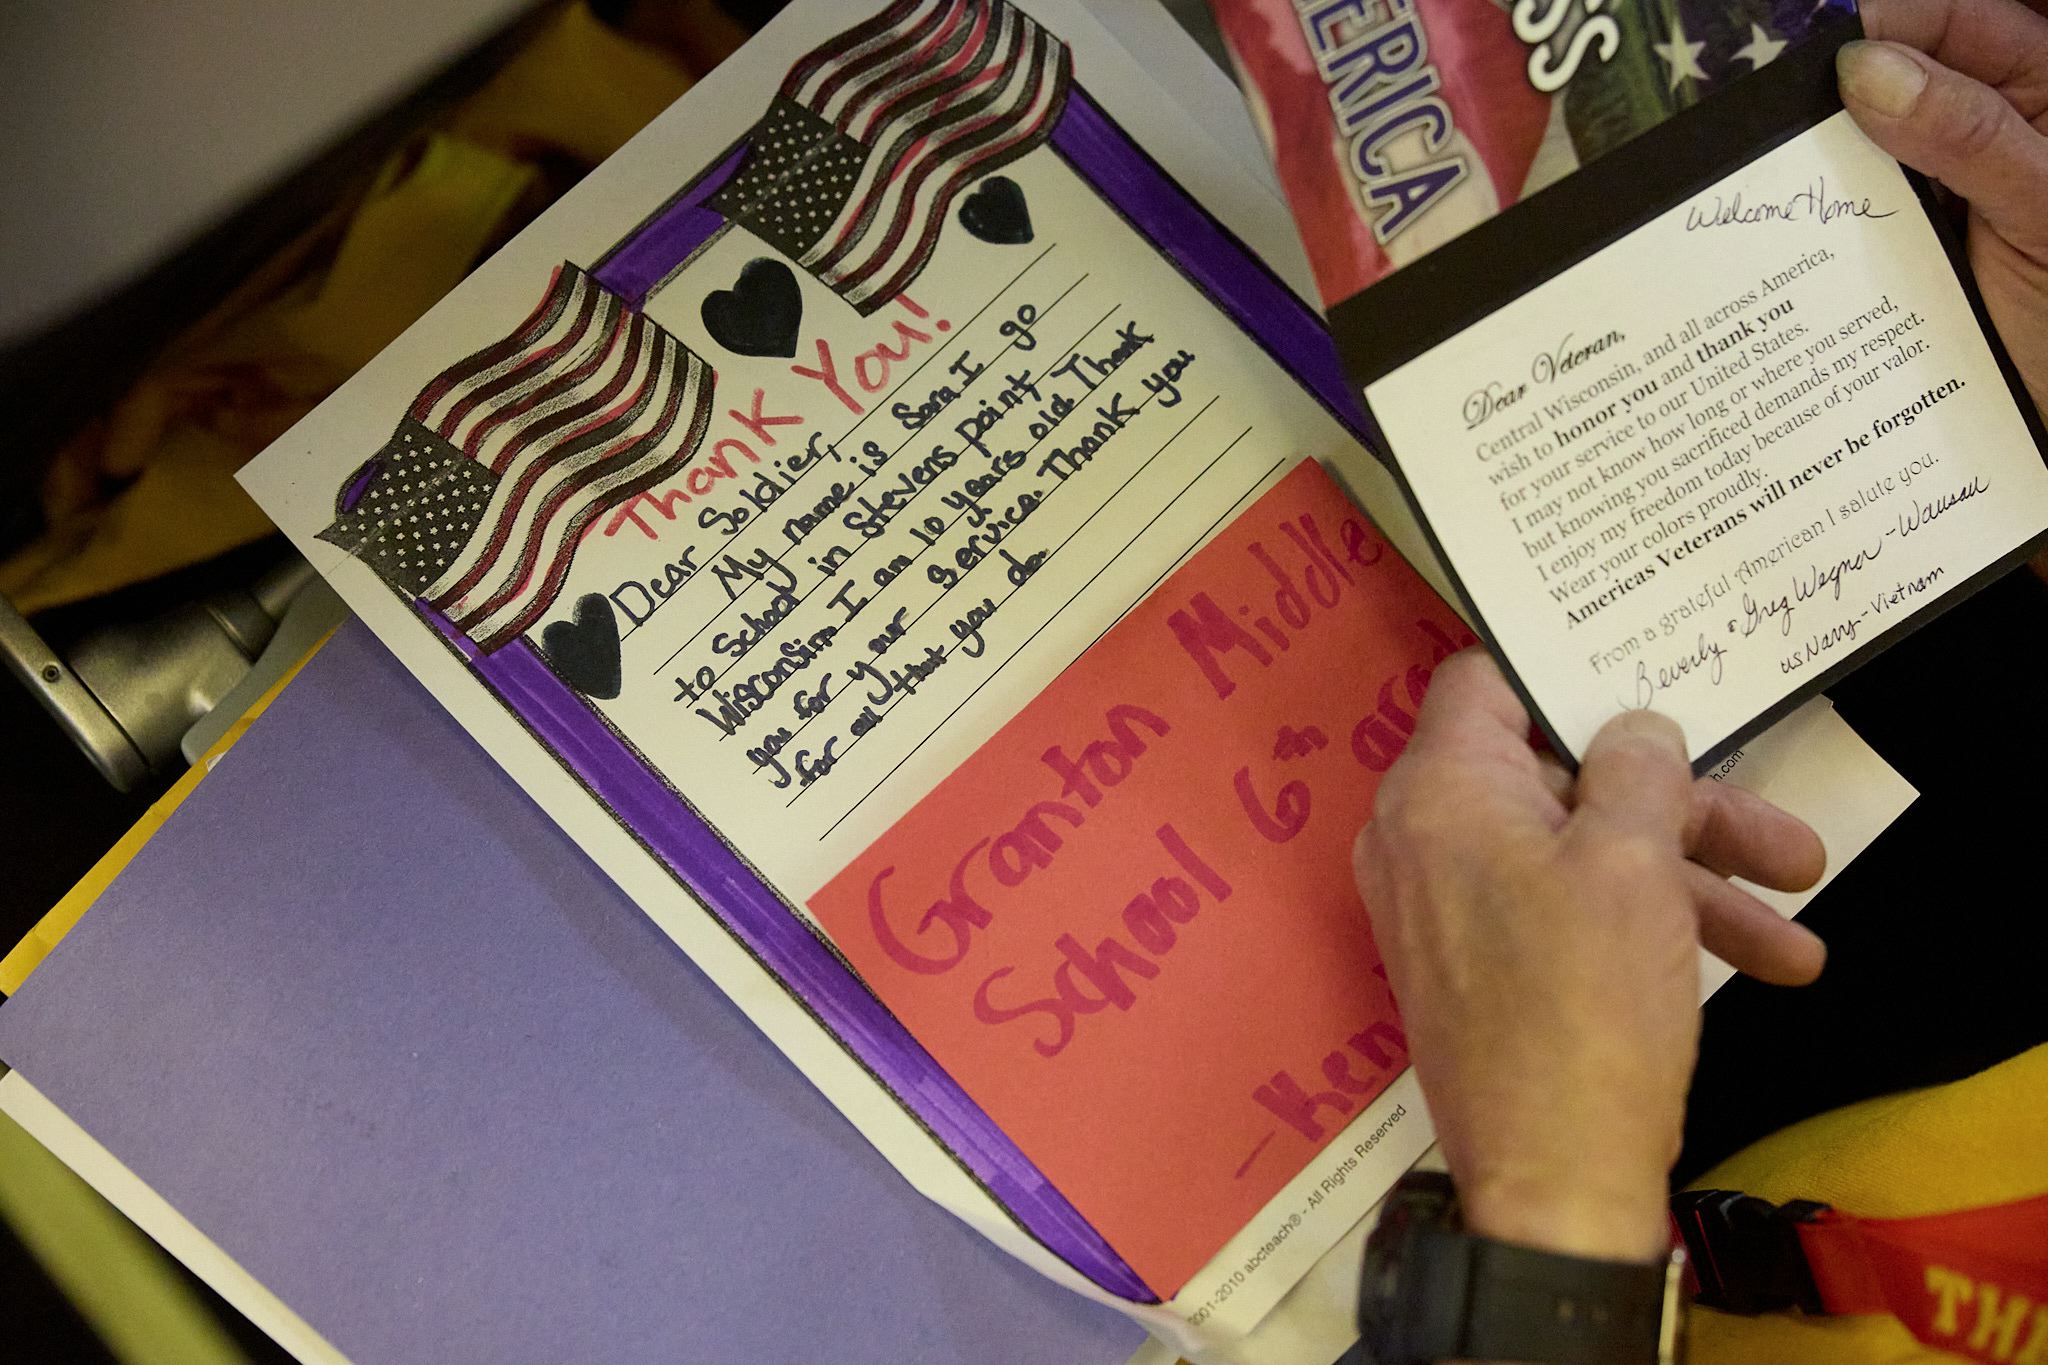 Thank You!
Dear Soldier,
My name is Sara I go
to School in Stevens point
Wisconsin I am 10 years old Thank
you for your service. Thank you
for all that you do.
Granton Middle
School 6th
001-2010 abcteach® - All Rights Reserved
ERICA
SS
Welcome Home
Dear Veteran,
Central Wisconsin, and all across America,
wish to honor you and thank you
for your service to our United States.
I may not know how long or where you served,
but knowing you sacrificed demands my respect.
I enjoy my freedom today because of your valor.
Wear your colors proudly.
Americas Veterans will never be forgotten.
From a grateful American I salute you.
Beverly & Greg Wegner - Wausau
US Navy - Vietnam
h.com
TH